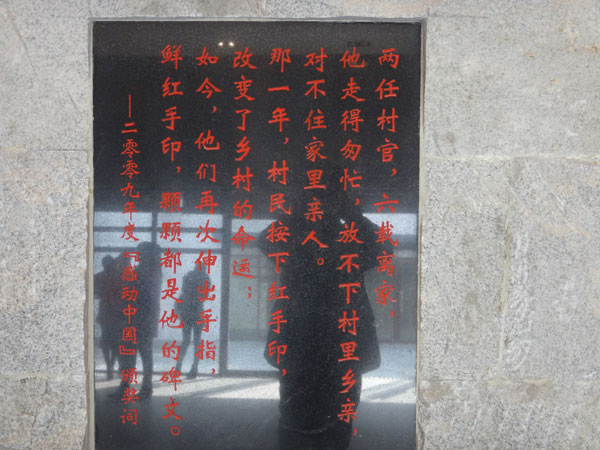 两任村官，六载离家，
他走得匆忙，放不下村里乡亲，
对不住家里亲人。
那一年，村民按下红手印，
改变了乡村的命运；
如今，他们再次伸出手指，
鲜红手印，颗颗都是他的碑文。
——二零零九年度『感动中国』颁奖词